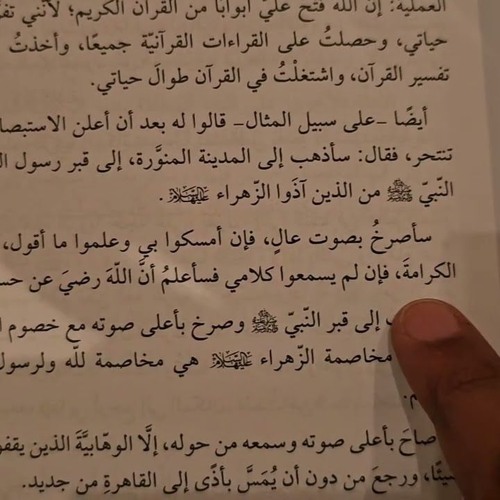 العملية: إن الله فتح عليّ أبوابًا من القرآن الكريم؛ لأنني
حياتي، وحصلتُ على القراءات القرآنيّة جميعًا، وأخذتُ
تفسير القرآن، واشتغلْتُ في القرآن طوالَ حياتي.
أيضًا –على سبيل المثال– قالوا له بعد أن أعلن الاستبصا
تنتحر، فقال: سأذهب إلى المدينة المنوَّرة، إلى قبر رسول
النّبيّ ﷺ من الذين آذَوا الزّهراء عليها السلام.
سأصرخُ بصوت عالٍ، فإن أمسكوا بي وعلموا ما أقول،
الكرامةَ، فإن لم يسمعوا كلامي فسأعلمُ أنَّ اللّهَ رضيَ عن
إلى قبر النّبيّ ﷺ وصرخ بأعلى صوته مع خصوم
مخاصمة الزّهراء عليها السلام هي مخاصمة للّه ولرسول
صاحَ بأعلى صوته وسمعه من حوله، إلَّا الوهابيَّةَ الذين
ورجعَ من دون أن يُمَسَّ بأذًى إلى القاهرةِ من جديد.